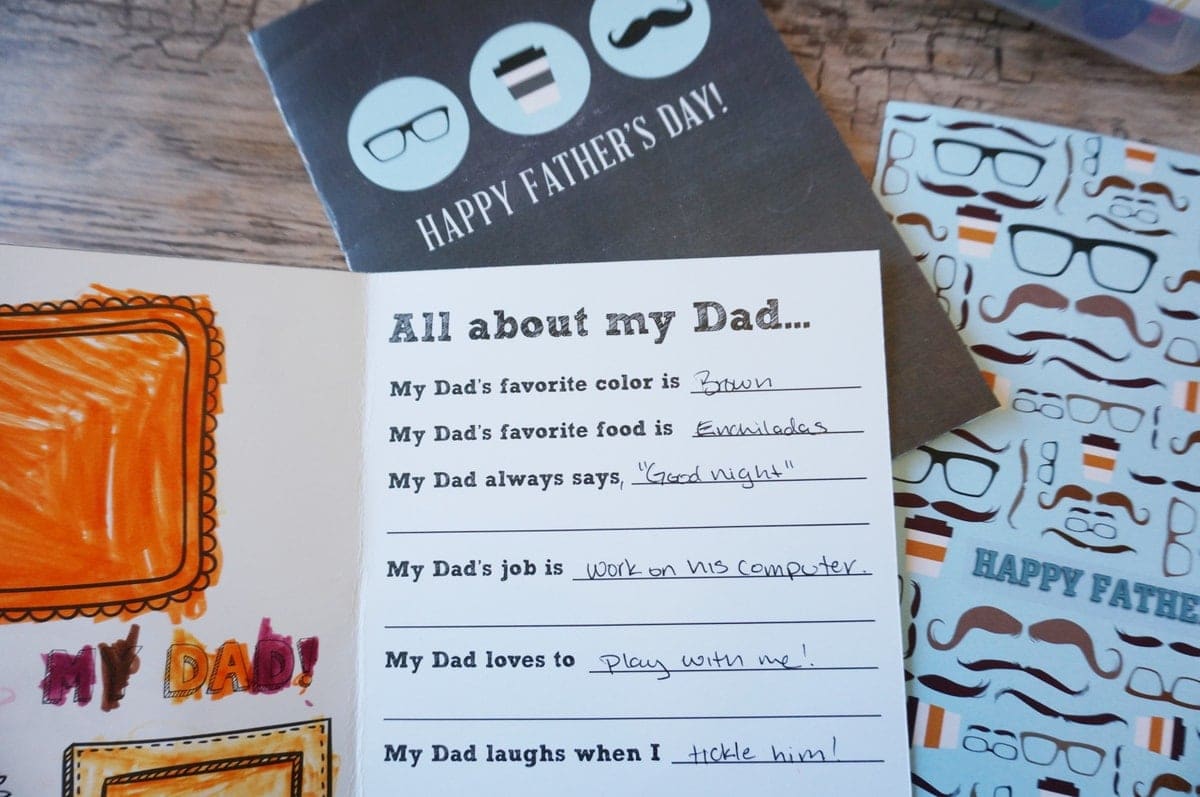 HAPPY FATHER'S DAY!
All about my Dad...
My Dad's favorite color is Brown
My Dad's favorite food is Enchiladas
My Dad always says, "Good night"
My Dad's job is work on his computer.
My Dad loves to play with me!
My Dad laughs when I tickle him!
MY DAD!
HAPPY FATHE